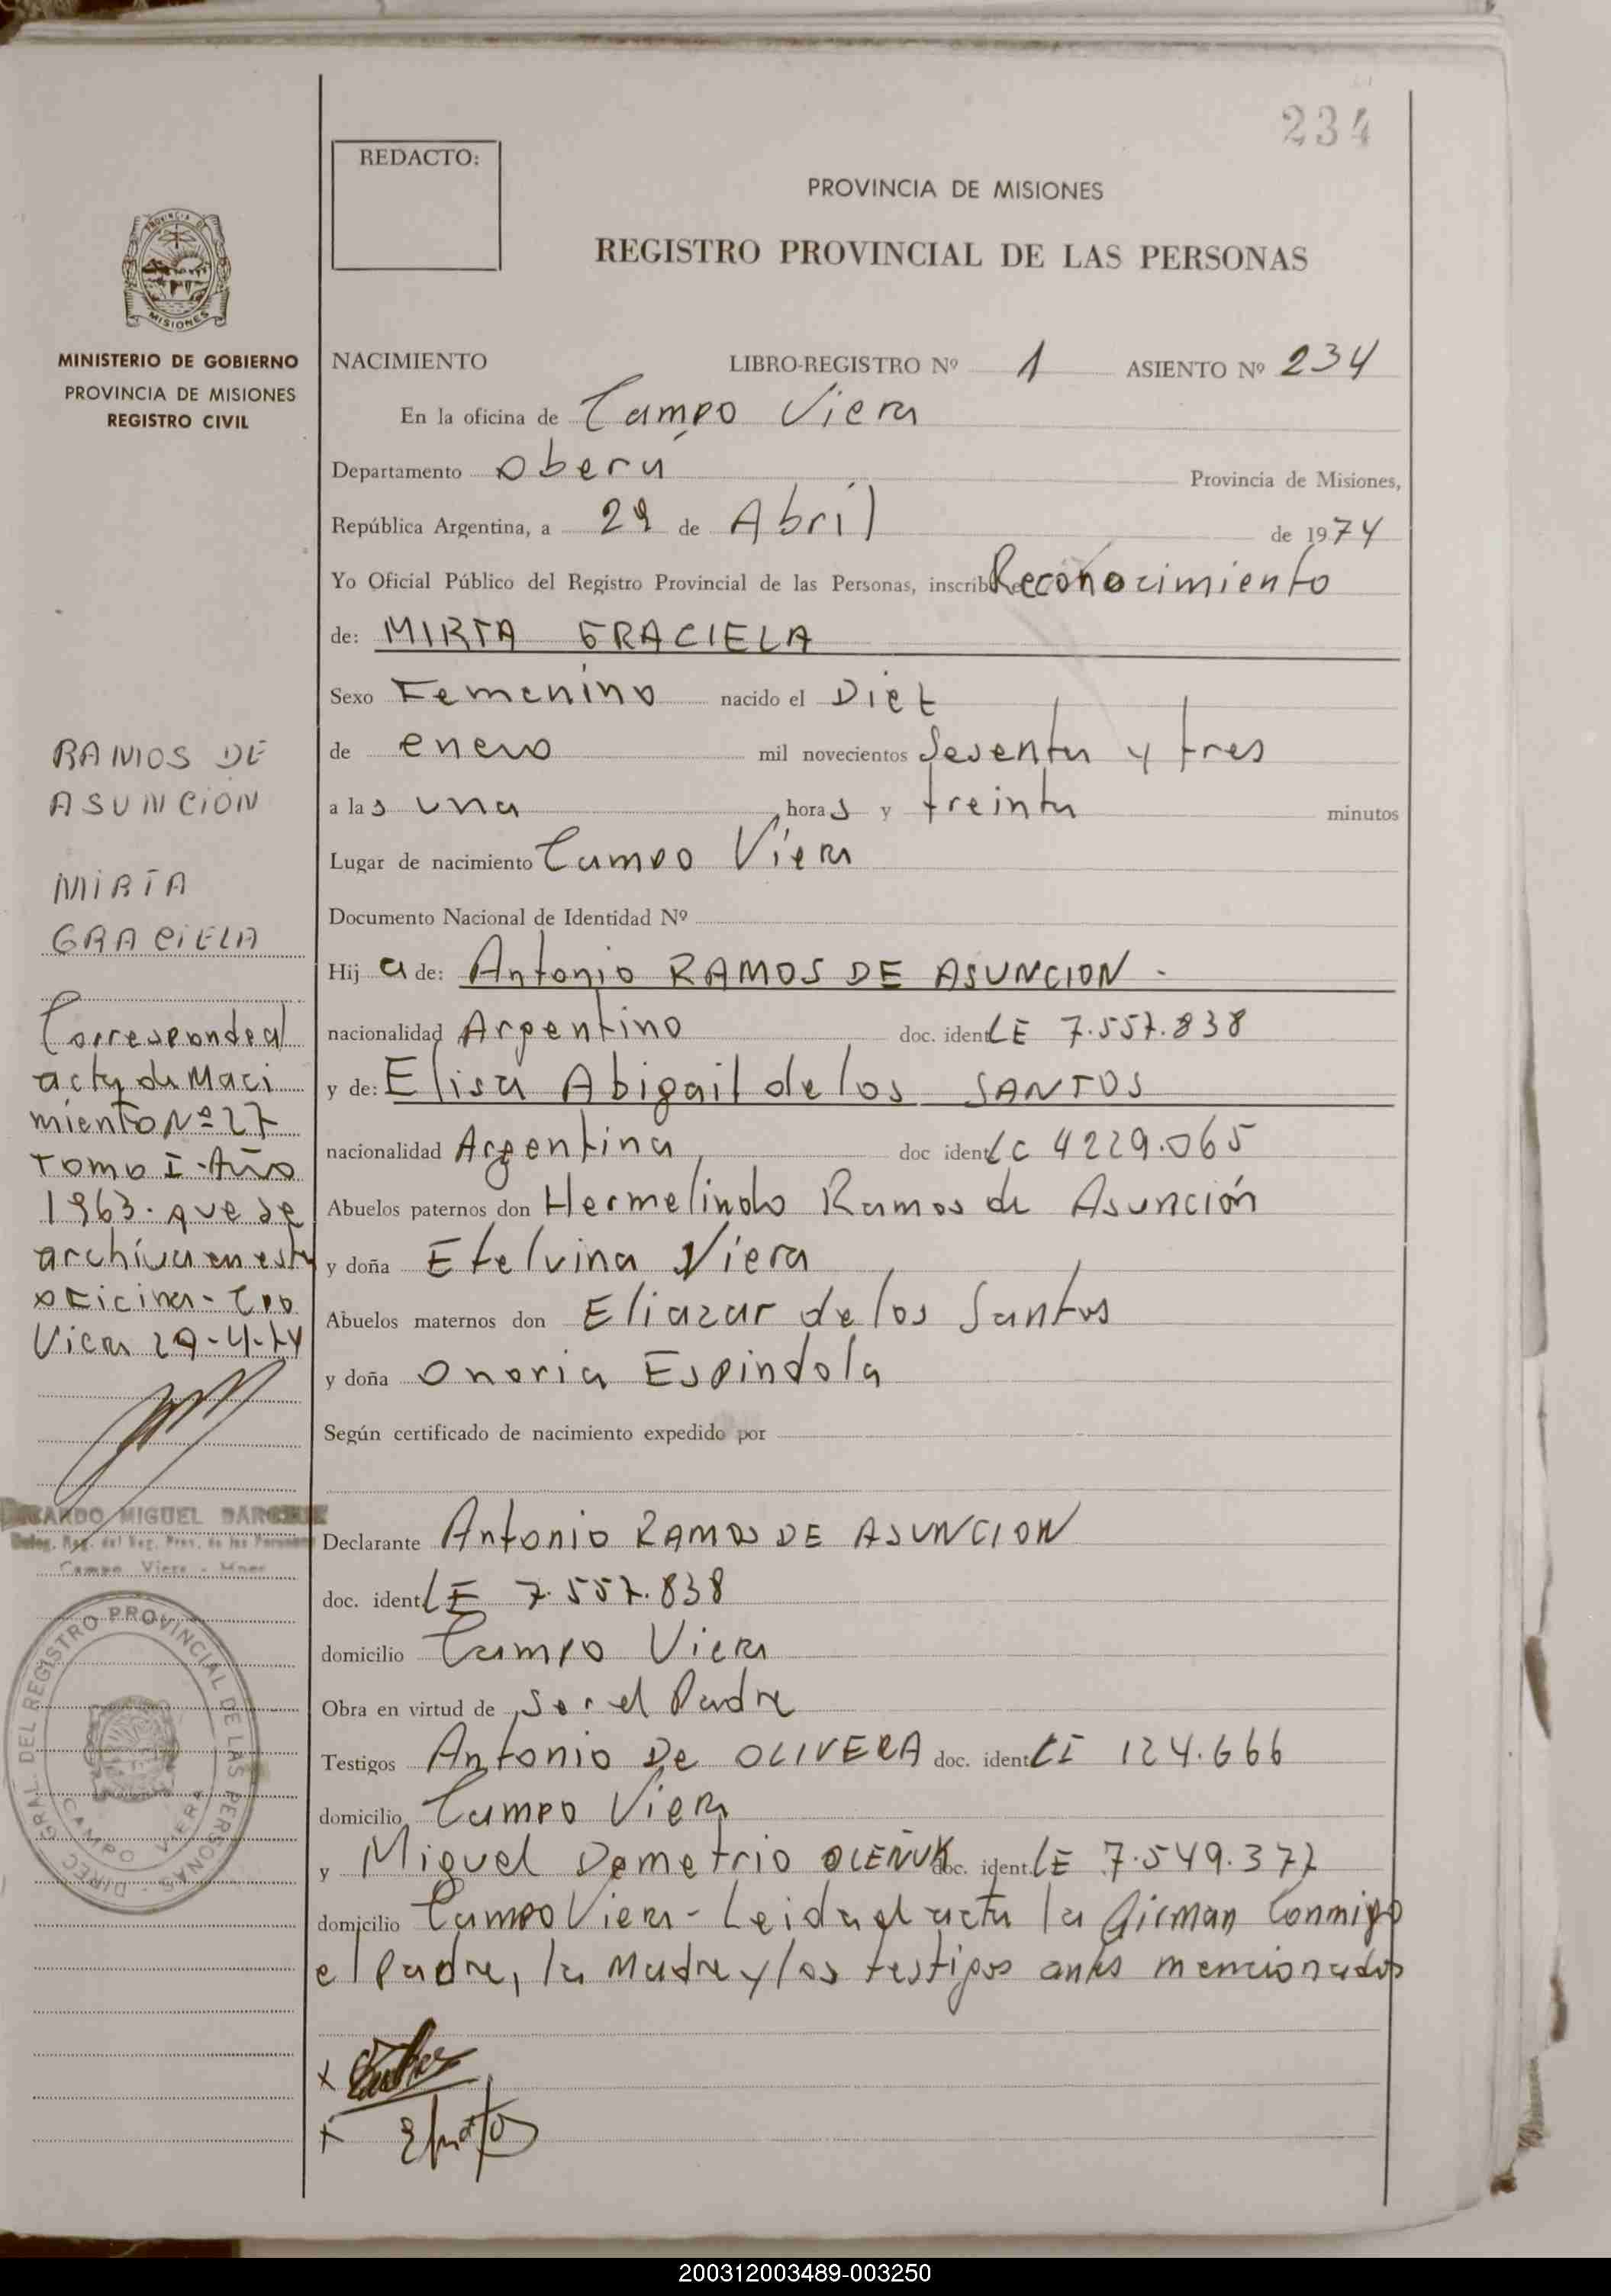 234
REDACTO:
PROVINCIA DE MISIONES
REGISTRO PROVINCIAL DE LAS PERSONAS
PROVINCIA DE
MISIONES
MINISTERIO DE GOBIERNO
PROVINCIA DE MISIONES
REGISTRO CIVIL
NACIMIENTO LIBRO-REGISTRO Nº 1 ASIENTO Nº 234
En la oficina de Campo Viera
Departamento Oberá Provincia de Misiones,
República Argentina, a 29 de Abril de 1974
Yo Oficial Público del Registro Provincial de las Personas, inscribo Reconocimiento
de: MIRTA GRACIELA
Sexo Femenino nacido el Diez
de enero mil novecientos Sesenta y tres
a las una horas y treinta minutos
Lugar de nacimiento Campo Viera
Documento Nacional de Identidad Nº
Hija de: Antonio RAMOS DE ASUNCION -
nacionalidad Argentino doc. ident. LE 7.557.838
y de: Elisa Abigail de los SANTOS
nacionalidad Argentina doc ident LC 4229.065
Abuelos paternos don Hermelindo Ramos de Asunción
y doña Etelvina Viera
Abuelos maternos don Eliazar de los Santos
y doña Onoria Espindola
Según certificado de nacimiento expedido por
Declarante Antonio RAMOS DE ASUNCION
doc. ident. LE 7.557.838
domicilio Campo Viera
Obra en virtud de Ser el Padre
Testigos Antonio De OLIVERA doc. ident. CI 124.666
domicilio Campo Viera
y Miguel Demetrio OLEÑUK doc. ident. LE 7.549.377
domicilio Campo Viera - Leida el acta la firman Conmigo
el Padre, la Madre y los testigos antes mencionados
x
x
RAMOS DE
ASUNCION
MIRTA
GRACIELA
Corresponde al
acta de Naci
miento Nº 27
Tomo I - Año
1963. que se
archiva en esta
oficina - Cpo
Viera 29-4-74
MIGUEL
Deleg. Reg. del Reg. Prov. de las Personas
Campo Viera - Mnes
DIREC. GRAL. DEL REGISTRO PROVINCIAL DE LAS PERSONAS -
CAMPO VIERA
200312003489-003250